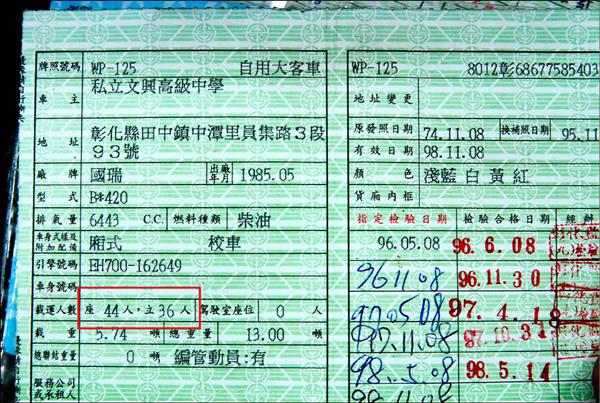 牌照號碼 WP-125 自用大客車
車主 私立文興高級中學
地址 彰化縣田中鎮中潭里員集路3段
93號
廠牌 國瑞 出廠年月 1985.05
型式 B*420
排氣量 6443 C.C. 燃料種類 柴油
車身式樣及附加配備 廂式 校車
引擎號碼 EH700-162649
車身號碼
載運人數 座 44 人,立 36 人 駕駛室座位 0 人
載重 5.74 噸 總重量 13.00 噸
總聯結重量 0 噸 編管動員:有
服務公司
或承租人
WP-125 8012彰68677585403
地址變更
原發照日期 74.11.08 換補照日期 95.11
有效日期 98.11.08
顏色 淺藍 白 黃 紅
貨廂內框
指定檢驗日期 檢驗合格日期 經辦
96.05.08 96.6.08
96 11.08 96.11.30
97.05.08 97.4.18
97.11.08 97.10.31
98.5.08 98.5.14